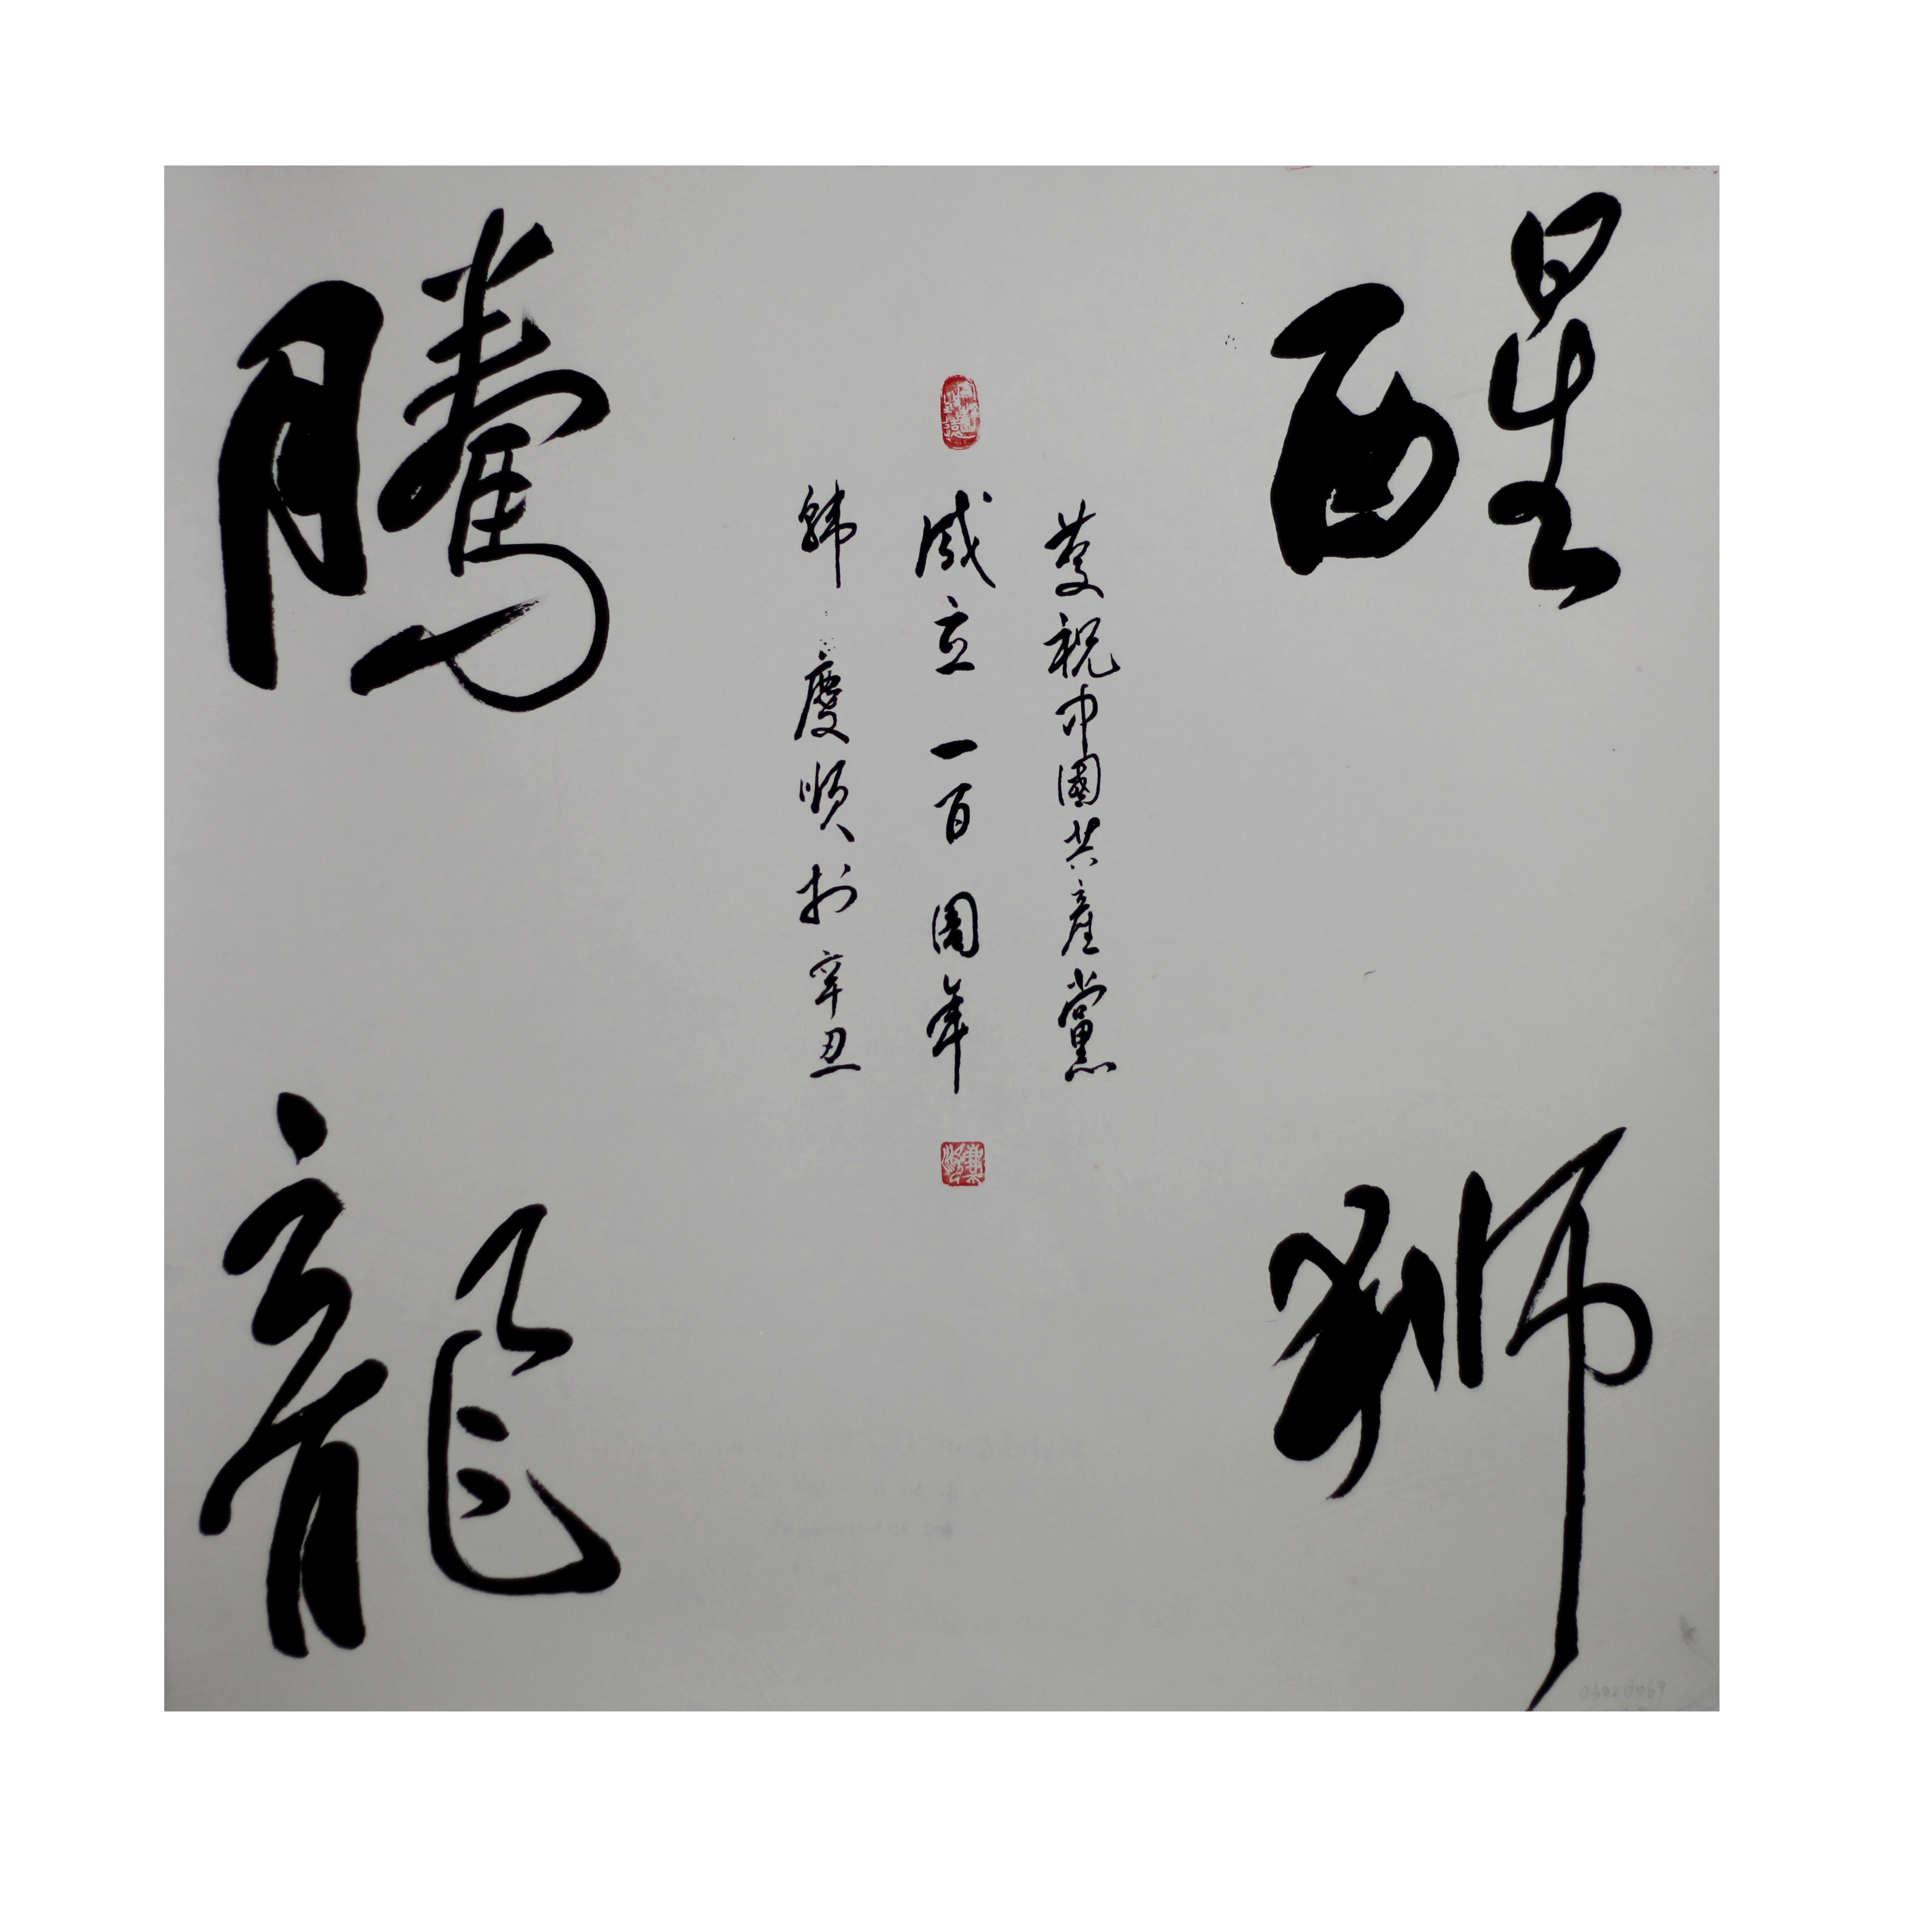 醒獅
慶祝中國共產黨
成立一百周年
韓慶順於辛丑
騰龍